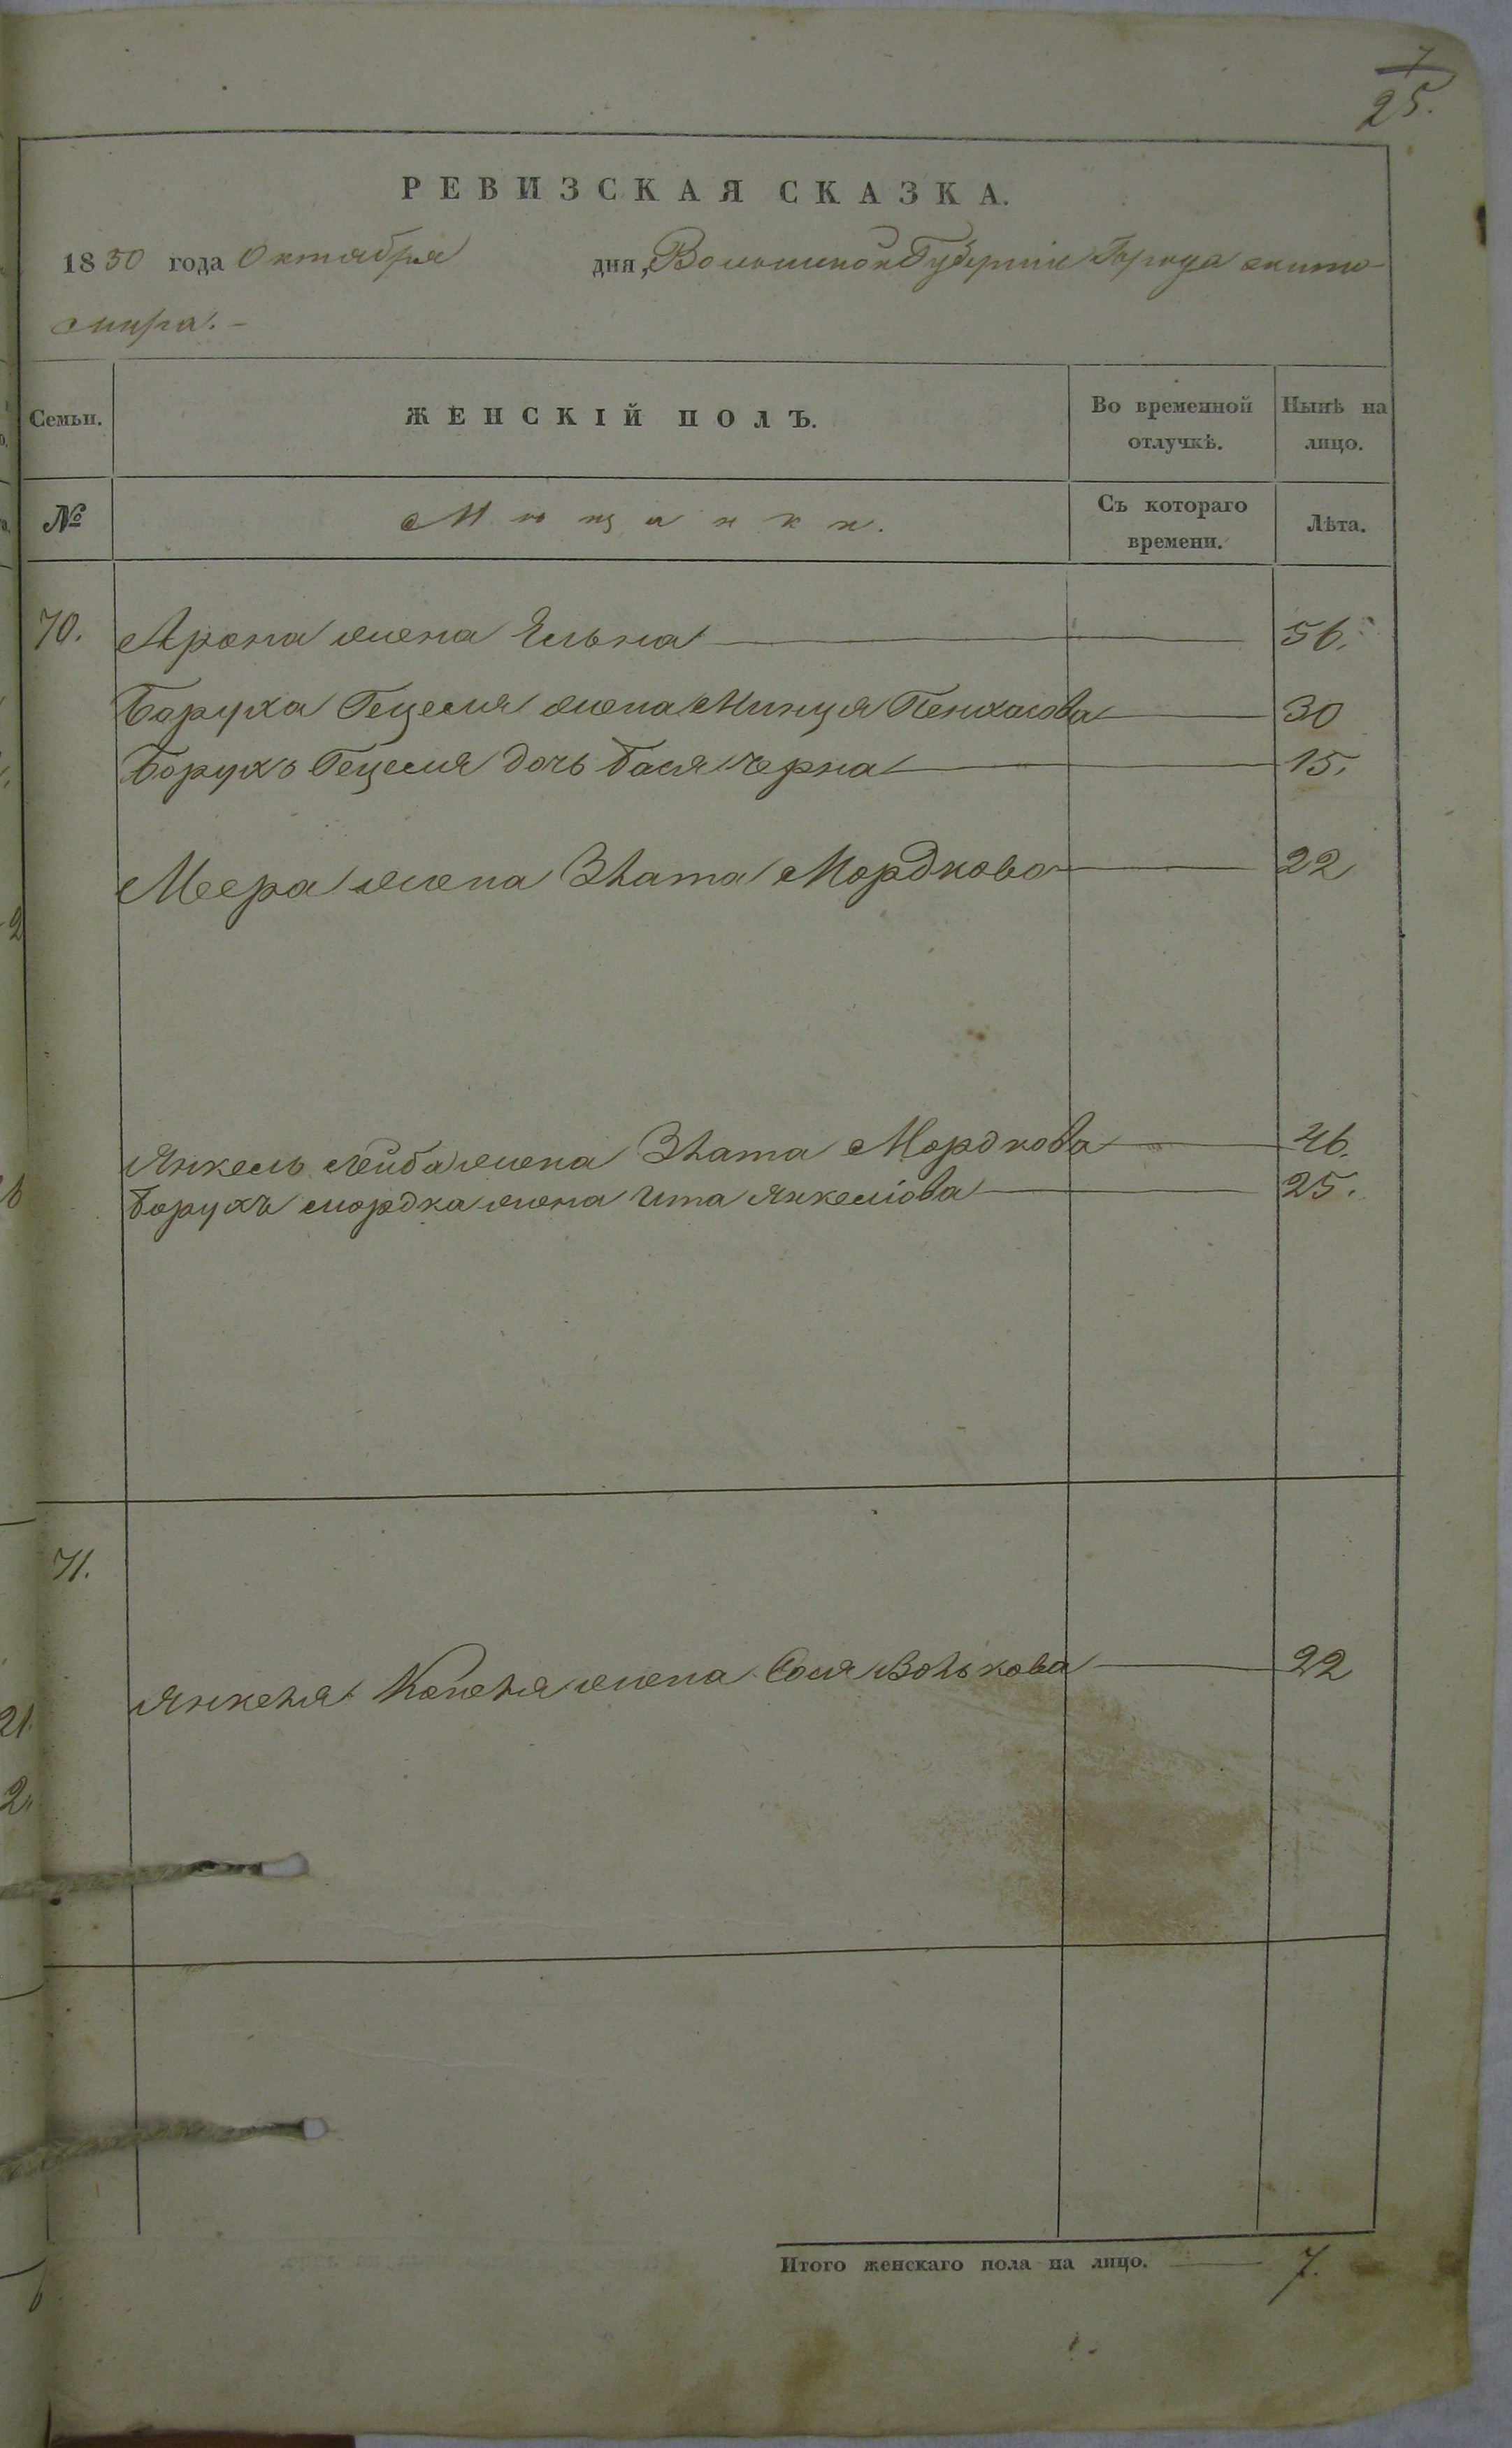 7
25.
РЕВИЗСКАЯ СКАЗКА.
1850 года Октября дня, Волынской Губернiи Города жито-
мира. -
Семьи. ЖЕНСКIЙ ПОЛЪ. Во временной отлучкѣ. Нынѣ на лицо.
№ Мѣщанки. Съ котораго времени. Лѣта.
70. Арона жена Елька 56.
Боруха Гецеля жена Минця Пенхасова 30
Борухъ Гецеля дочь Бася черна 15.
Меера жена Злата Мордкова 22
Янкель лейба жена Злата Мордкова 46.
Борухъ мордка жена Ита Янкелiова 25.
71.
Янкеля Копеля жена Сося Волькова 22
Итого женскаго пола на лицо. 7.